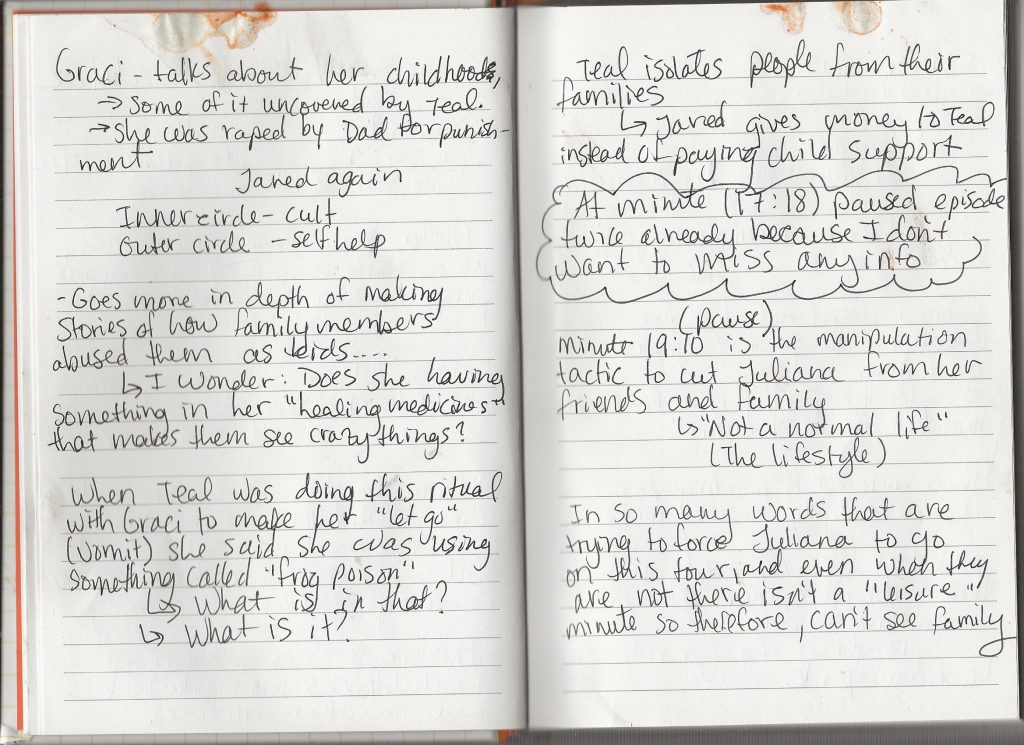 Graci - talks about her childhood,
→ Some of it uncovered by Teal.
→ She was raped by Dad for punish-
ment
Jared again
Inner circle - cult
Outer circle - self help
- Goes more in depth of making
stories of how family members
abused them as kids....
↳ I wonder: Does she having
something in her "healing medicines"
that makes them see crazy things?
When Teal was doing this ritual
with Graci to make her "let go"
(vomit) she said she was using
something called "frog poison"
↳ What is in that?
↳ What is it?
Teal isolates people from their
families
↳ Jared gives money to Teal
instead of paying child support
At minute (17:18) paused episode
twice already because I don't
want to miss any info
(pause)
minute 19:10 is the manipulation
tactic to cut Juliana from her
friends and family
↳ "Not a normal life"
(The lifestyle)
In so many words that are
trying to force Juliana to go
on this tour, and even when they
are not there isn't a "leisure"
minute so therefore, can't see family